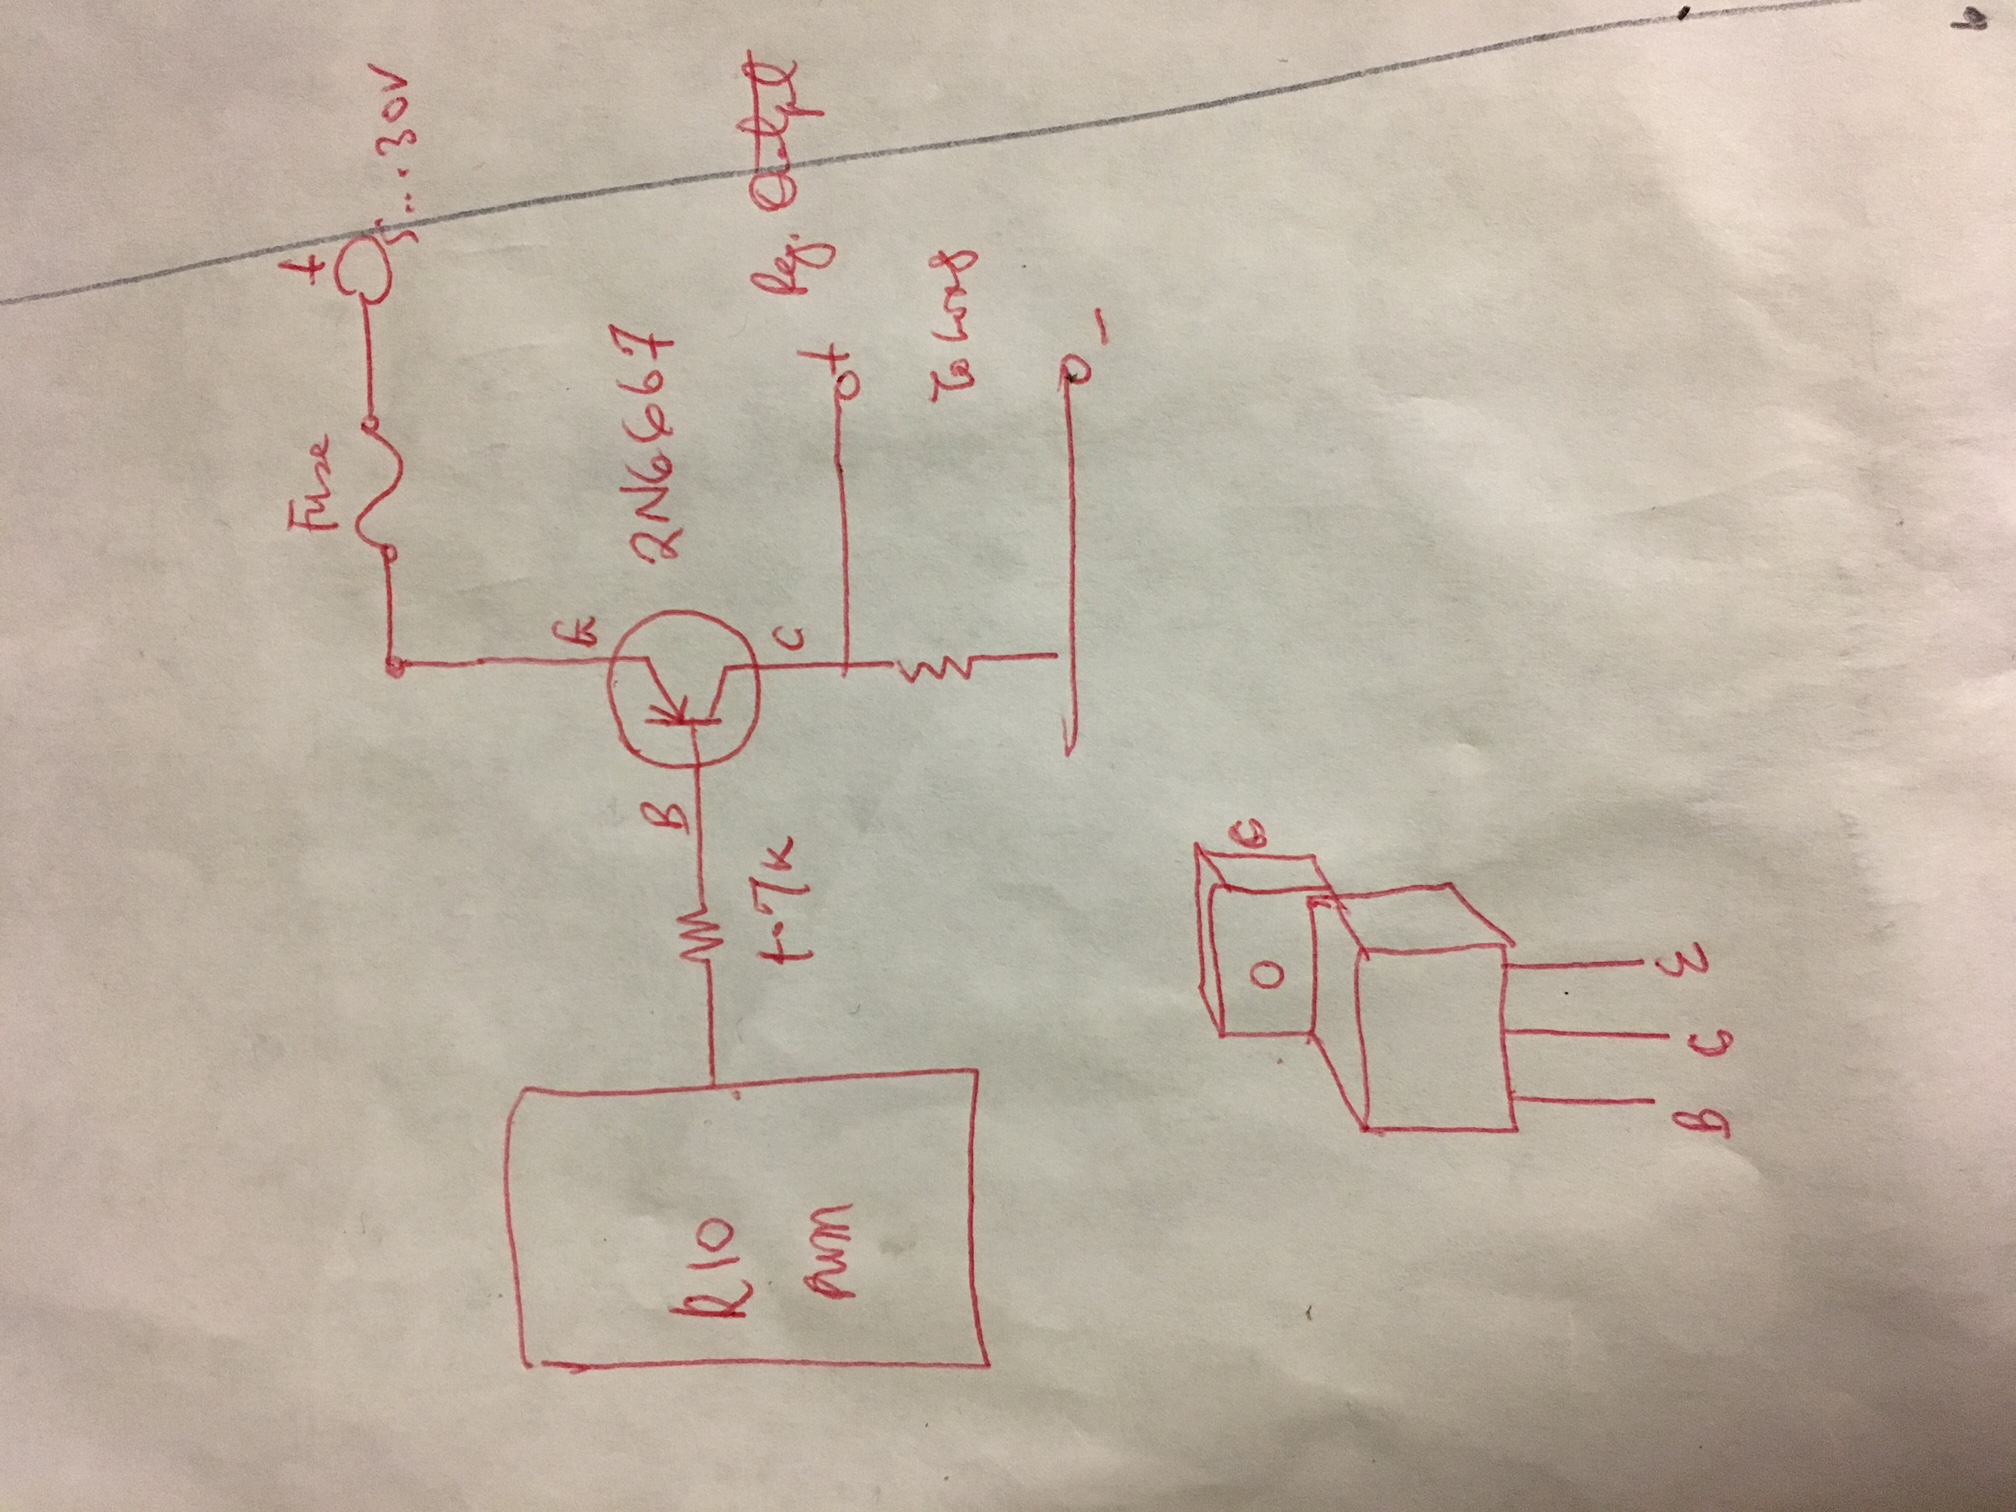 Fuse
+
5...30V
E
B
2N6667
R10
4.7K
C
+
Reg. Output
To Load
-
B C E